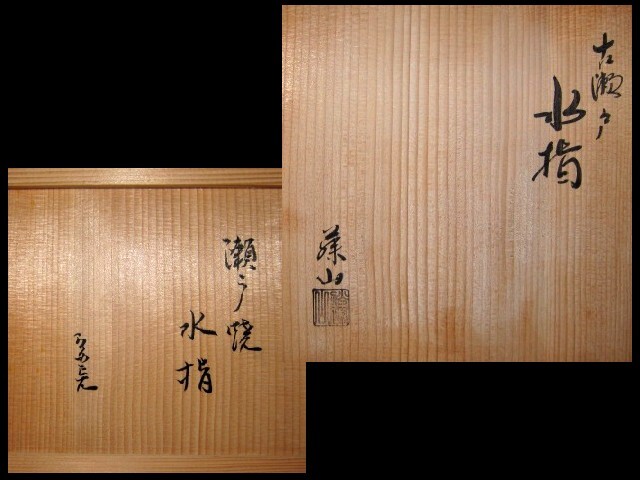 古瀬戸
水指
藤山
瀬戸燒
水指